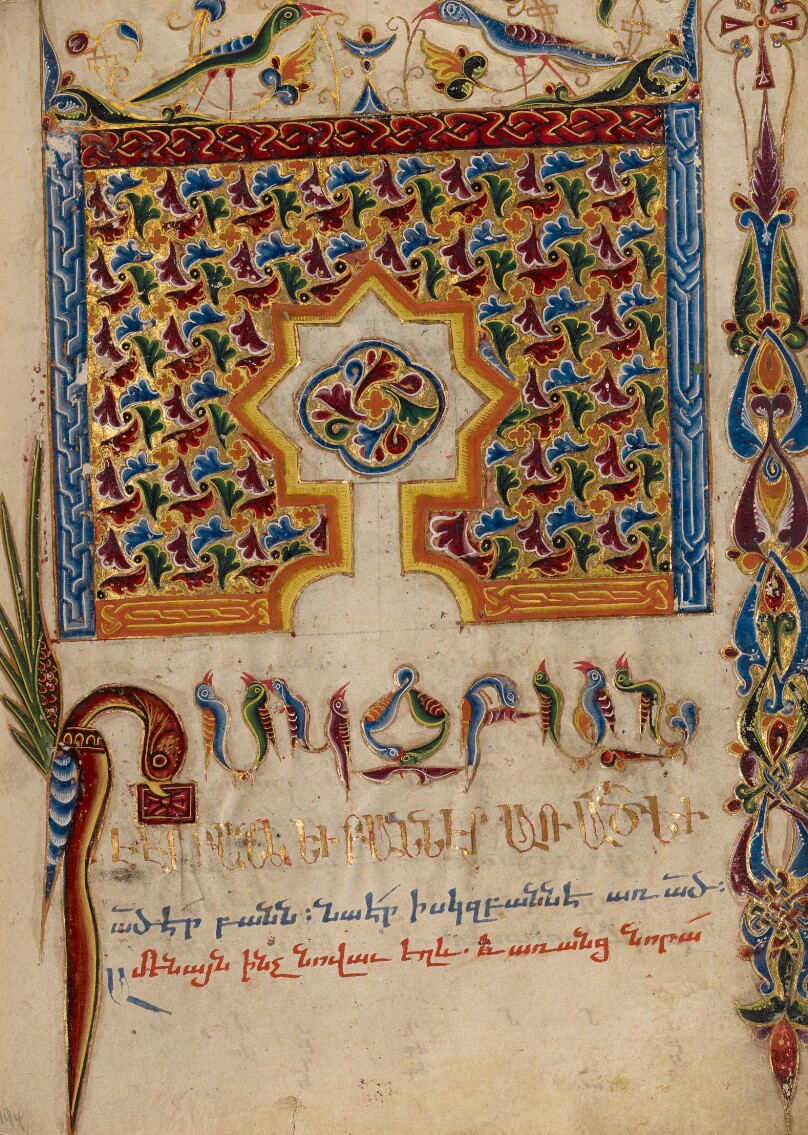 ԻՍԿԶԲԱՆ
Է ԷՐ ԲԱՆՆ ԵՒ ԲԱՆՆ ԷՐ ԱՌ ԱԾ ԵՒ
ած էր բանն ։ նա էր իսկզբաննէ առ ած ։
Ամենայն ինչ նովաւ եղև . և առանց նորա
194